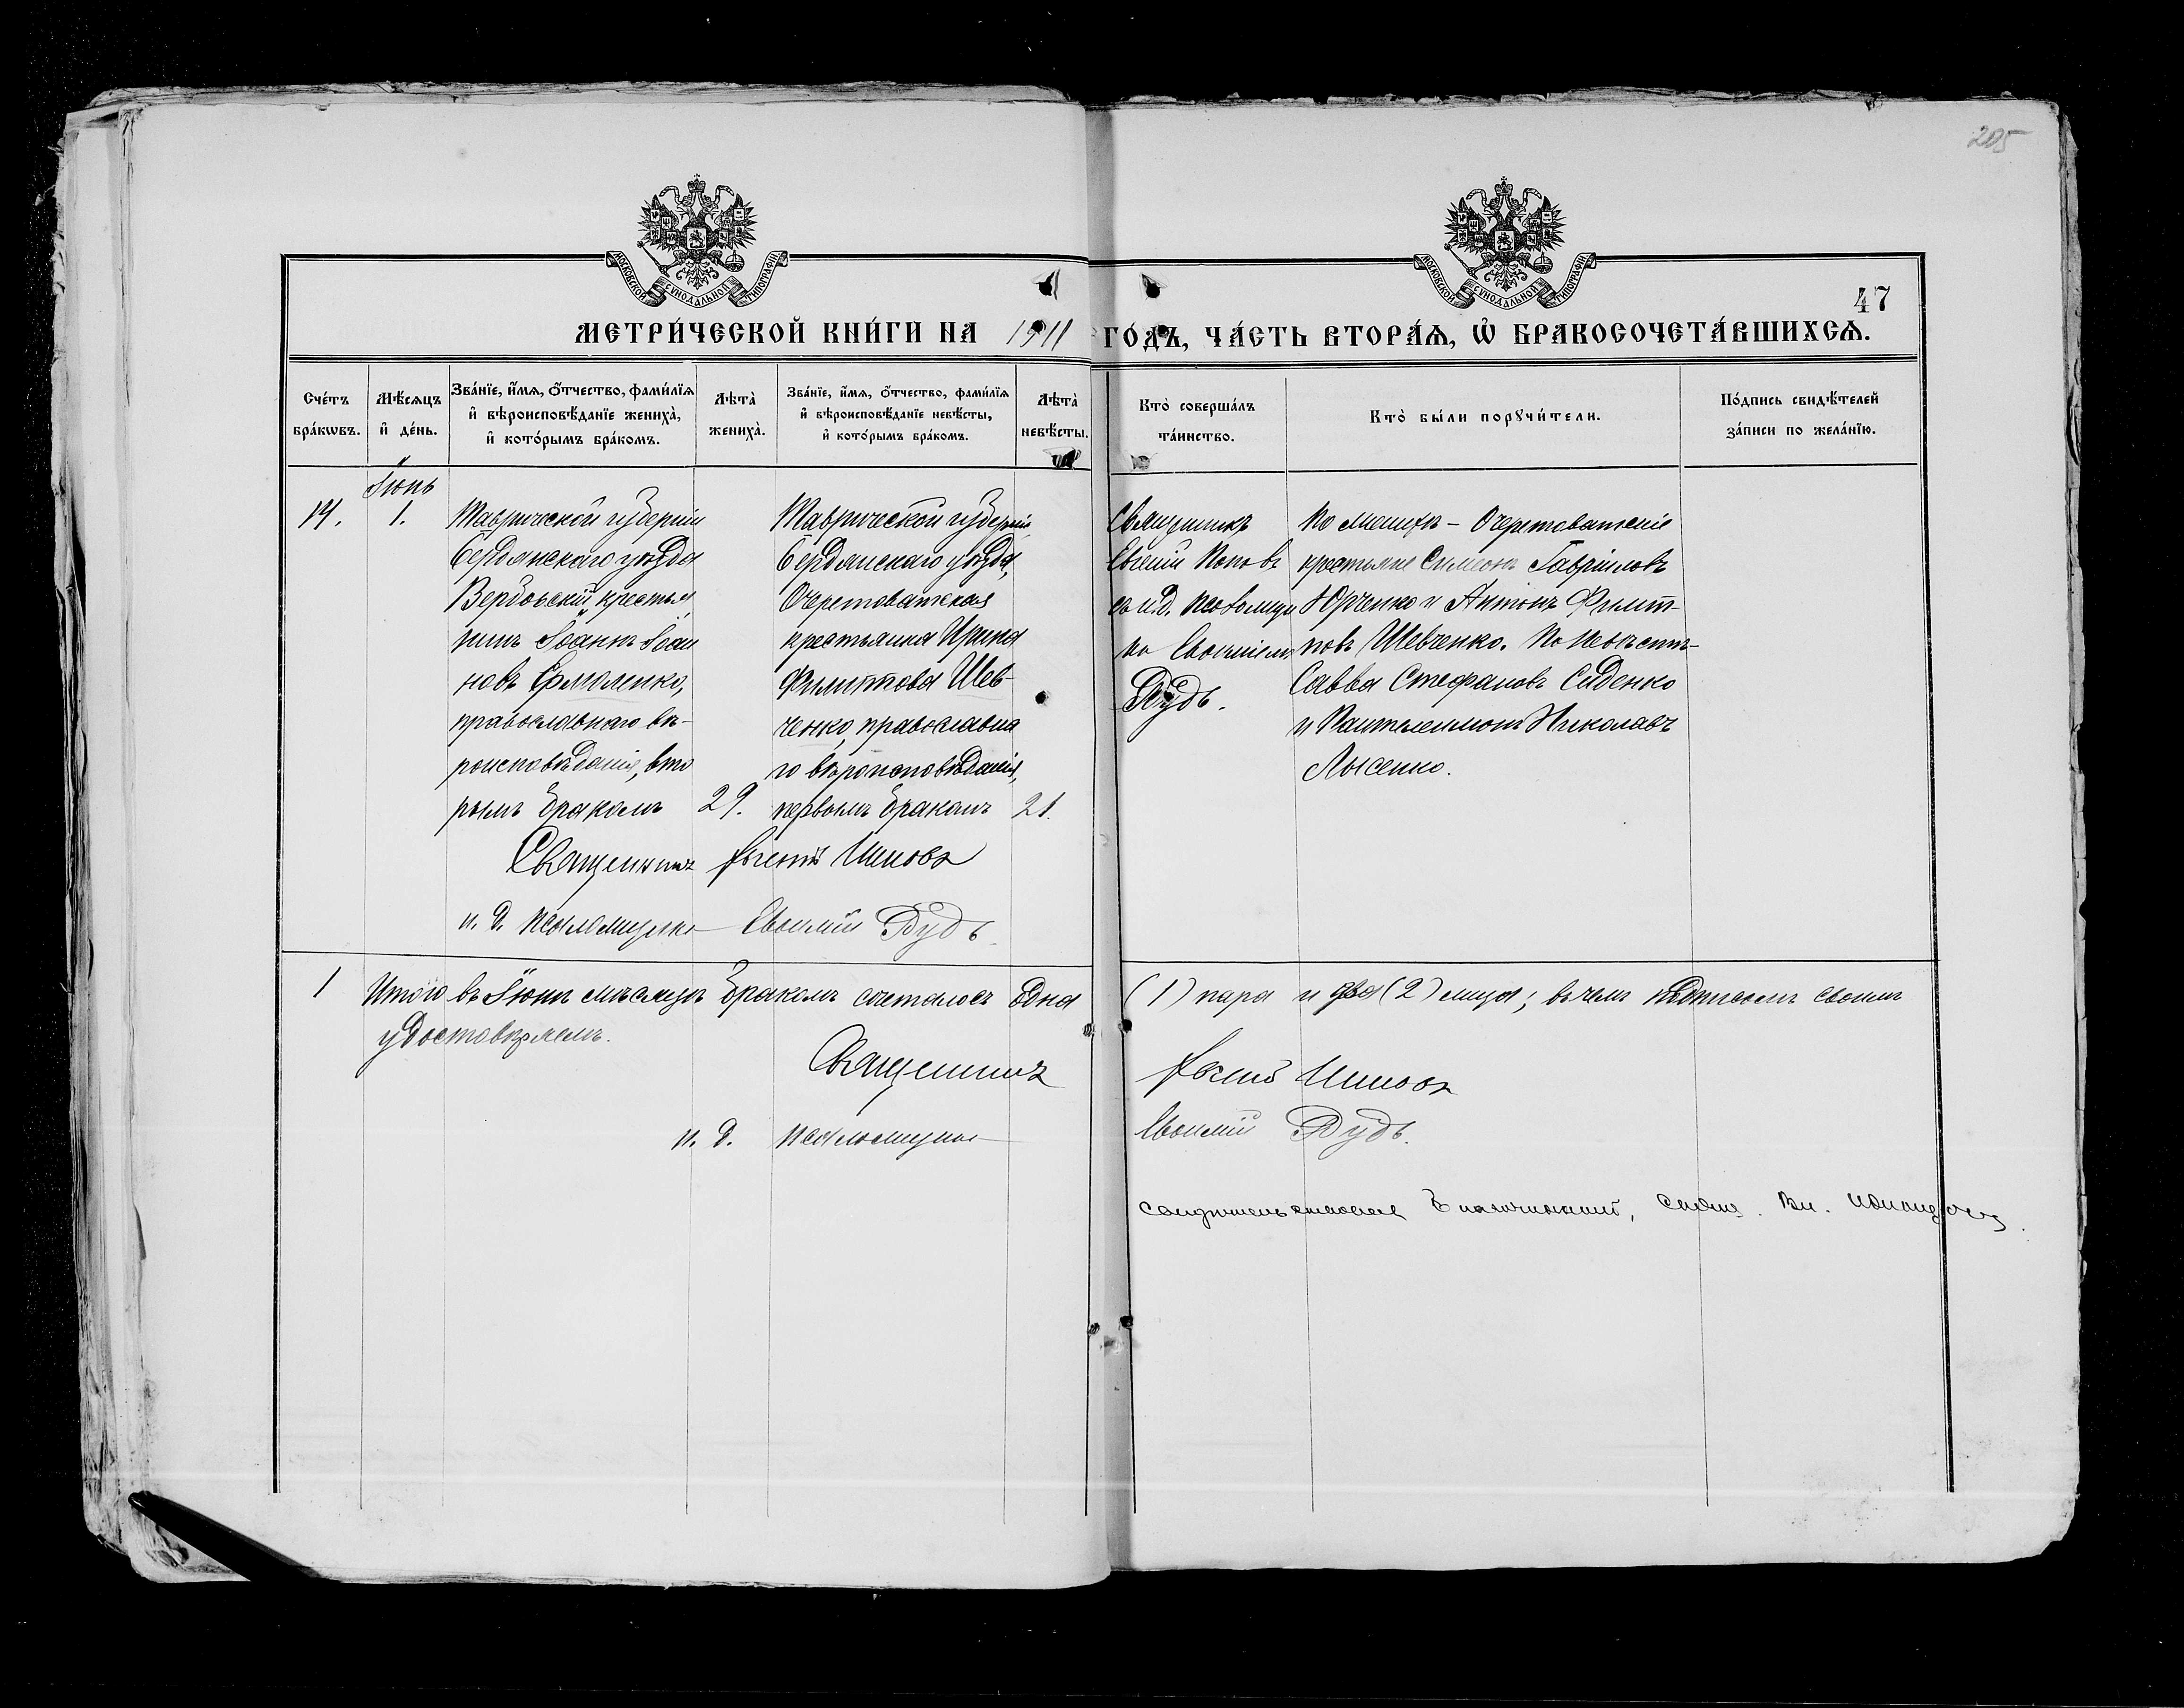 205
МОСКОВСКОЙ СѴНОДАЛЬНОЙ ТИПОГРАФІИ
МОСКОВСКОЙ СѴНОДАЛЬНОЙ ТИПОГРАФІИ
47
МЕТРИ́ЧЕСКОЙ КНИ́ГИ НА 1911 ГО́ДЪ, ЧА́СТЬ ВТОРА́Ѧ, Ѡ҆ БРАКОСОЧЕТА́ВШИХСѦ.
Сче́тъ
бра́кωвъ.
Мѣ́сяцъ
и҆ де́нь.
Зва́нїе, и҆́мѧ, ѻ҆́тчество, фами́лїѧ
и҆ вѣроисповѣ́данїе жениха̀,
и҆ кото́рымъ бра́комъ.
Лѣта̀
жениха̀.
Зва́нїе, и҆́мѧ, ѻ҆́тчество, фами́лїѧ
и҆ вѣроисповѣ́данїе невѣ́сты,
и҆ кото́рымъ бра́комъ.
Лѣта̀
невѣ́сты.
Кто̀ соверша́лъ
та́инство.
Кто̀ бы́ли порꙋчи́тели.
По́дпись свидѣ́телей
за́писи по жела́нїю.
Іюнь
14.
1.
Таврической губерніи
Бердянскаго уѣзда
Вербовскій крестья
нинъ Іоаннъ Іоан
новъ Ермоленко,
православнаго вѣ-
роисповѣданія, вто
рымъ бракомъ
29.
Таврической губерніи
Бердянскаго уѣзда,
Очеретоватская
крестьянка Ирина
Филиппова Шев-
ченко, православна
го вѣроисповѣданія,
первымъ бракомъ
21.
Священникъ
Евгеній Поповъ
съ и.д. псаломщи
ка Евфиміемъ
Рудь.
По женихѣ – Очеретоватскіе
крестьяне Симеонъ Гавріиловъ
Юрченко и Антонъ Филип-
повъ Шевченко. По невѣстѣ-
Савва Стефановъ Сиденко
и Пантелеимонъ Николаевъ
Лысенко.
Священникъ Евгеній Поповъ
и. д. псаломщика Евфимій Рудь
1 Итого въ Іюнѣ мѣсяцѣ бракомъ сочеталось одна (1) пара и два (2) лица; въ чемъ подписомъ своимъ
удостовѣряемъ.
Священникъ Евгеній Поповъ
и. д. псаломщика Евфимій Рудь.
Свидѣтельствовалъ Благочинный, свящ. Вл.